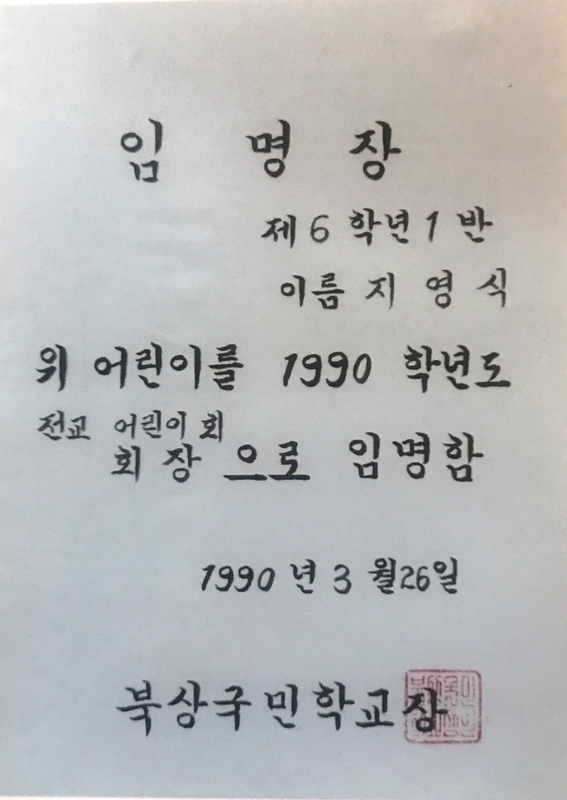 임 명 장
제 6 학년 1 반
이름 지 영 식
위 어린이를 1990 학년도
전교 어린이 회
회 장 으로 임명함
1990 년 3 월 26일
북상국민학교장